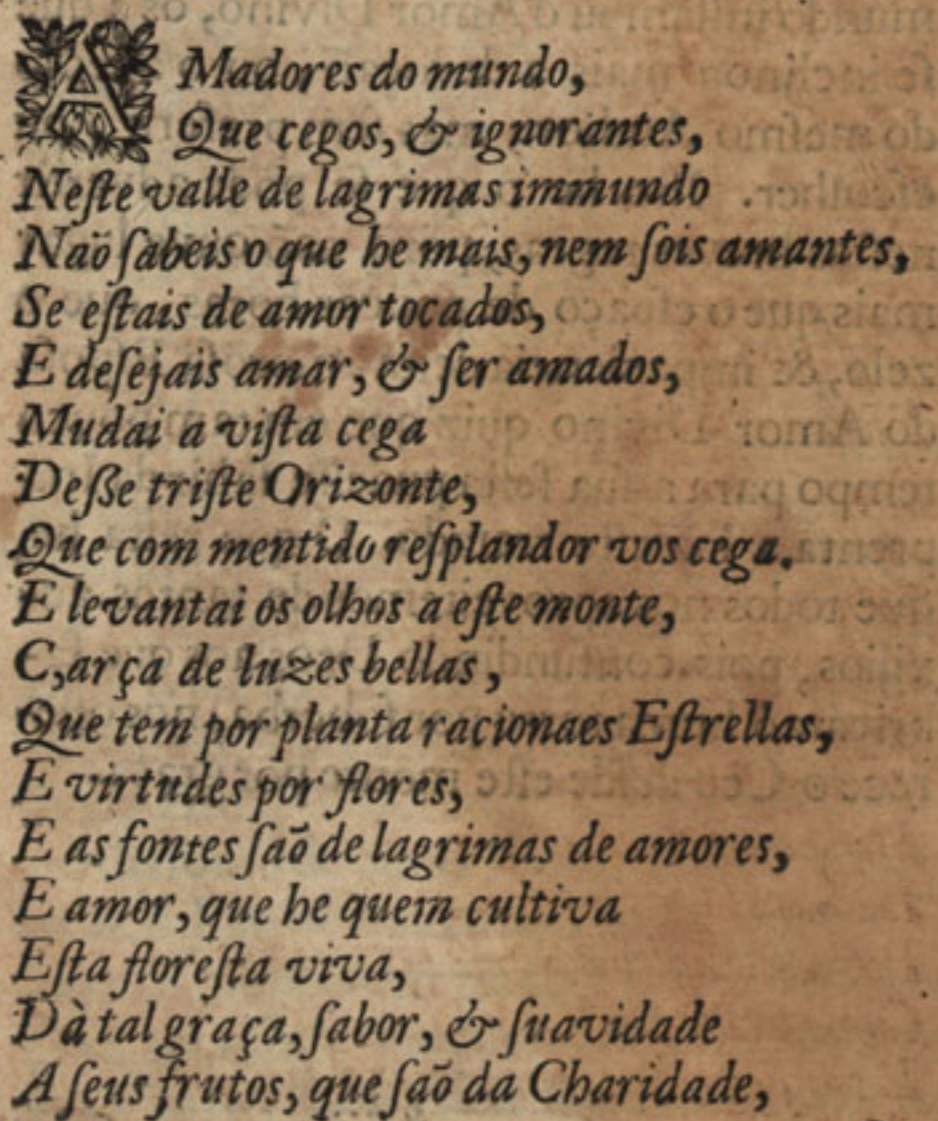 AMadores do mundo,
Que cegos, & ignorantes,
Neſte valle de lagrimas immundo
Naõ ſabeis o que he mais, nem ſois amantes,
Se eſtais de amor tocados,
E deſejais amar, & ſer amados,
Mudai a viſta cega
Deſſe triſte Orizonte,
Que com mentido reſplandor vos cega.
E levantai os olhos a eſte monte,
C,arça de luzes bellas,
Que tem por planta racionaes Eſtrellas,
E virtudes por flores,
E as fontes ſaõ de lagrimas de amores,
E amor, que he quem cultiva
Eſta floreſta viva,
Dà tal graça, ſabor, & ſuavidade
A ſeus frutos, que ſaõ da Charidade,